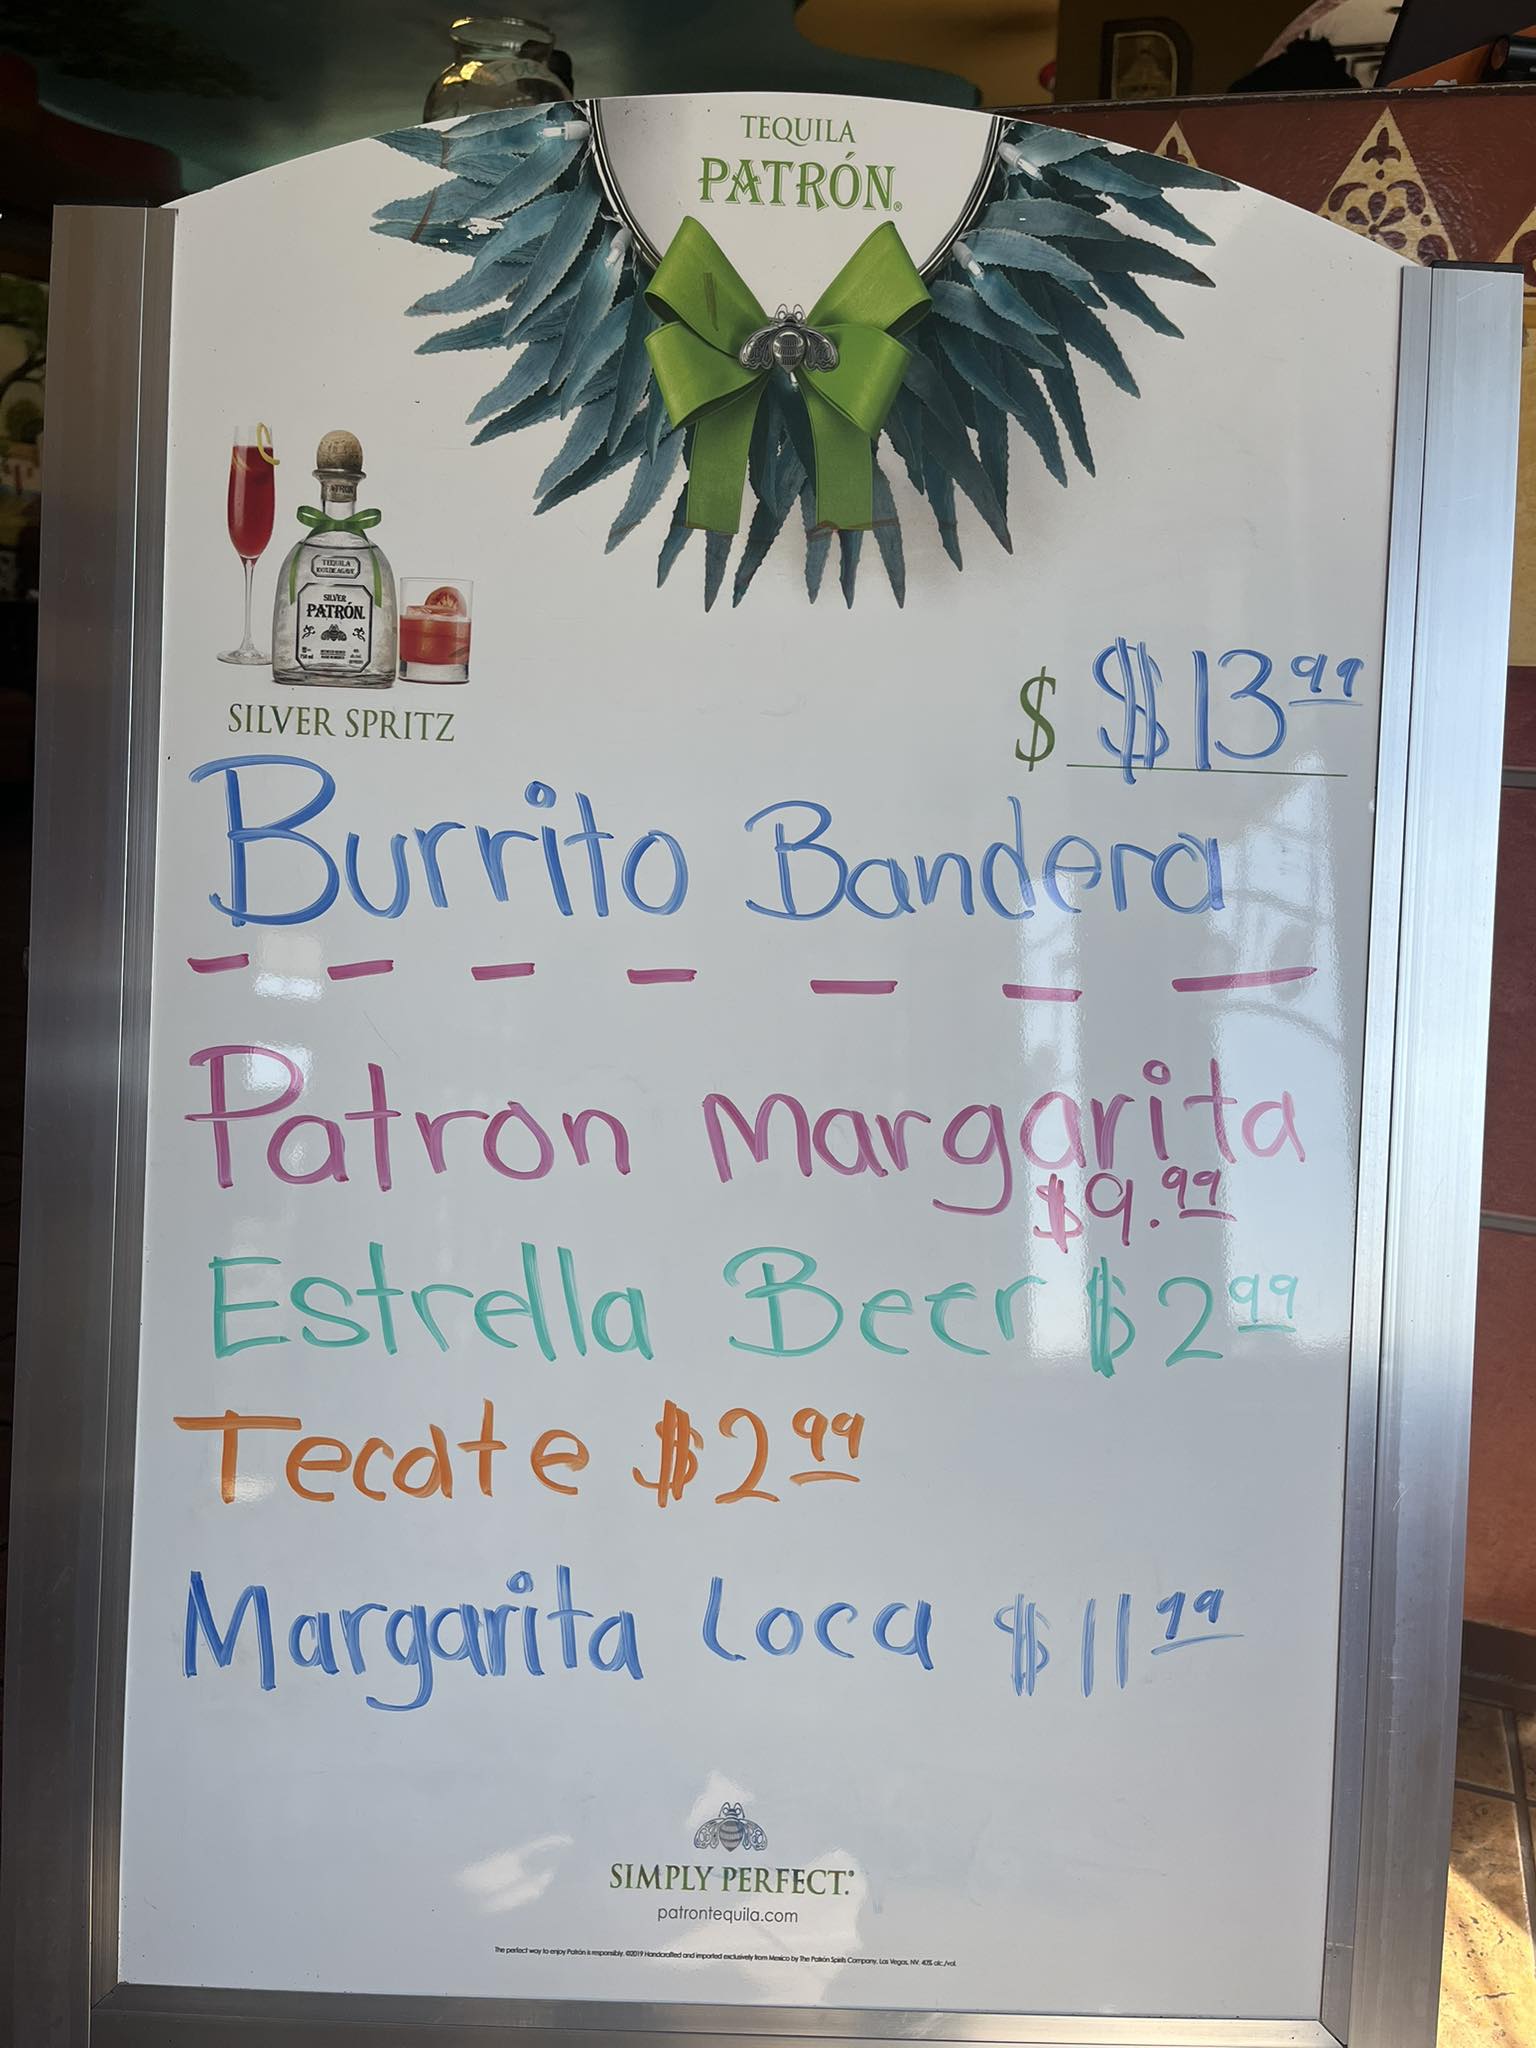 TEQUILA
PATRÓN®
TEQUILA
100% DE AGAVE
SILVER
PATRÓN
SILVER SPRITZ
$ $13 99
Burrito Bandera
- - - - - - -
Patron Margarita
$9.99
Estrella Beer $2 99
Tecate $2 99
Margarita Loca $11 99
SIMPLY PERFECT.®
patrontequila.com
The perfect way to enjoy Patrón is responsibly. ©2019 Handcrafted and imported exclusively from Mexico by The Patrón Spirits Company, Las Vegas, NV. 40% alc./vol.